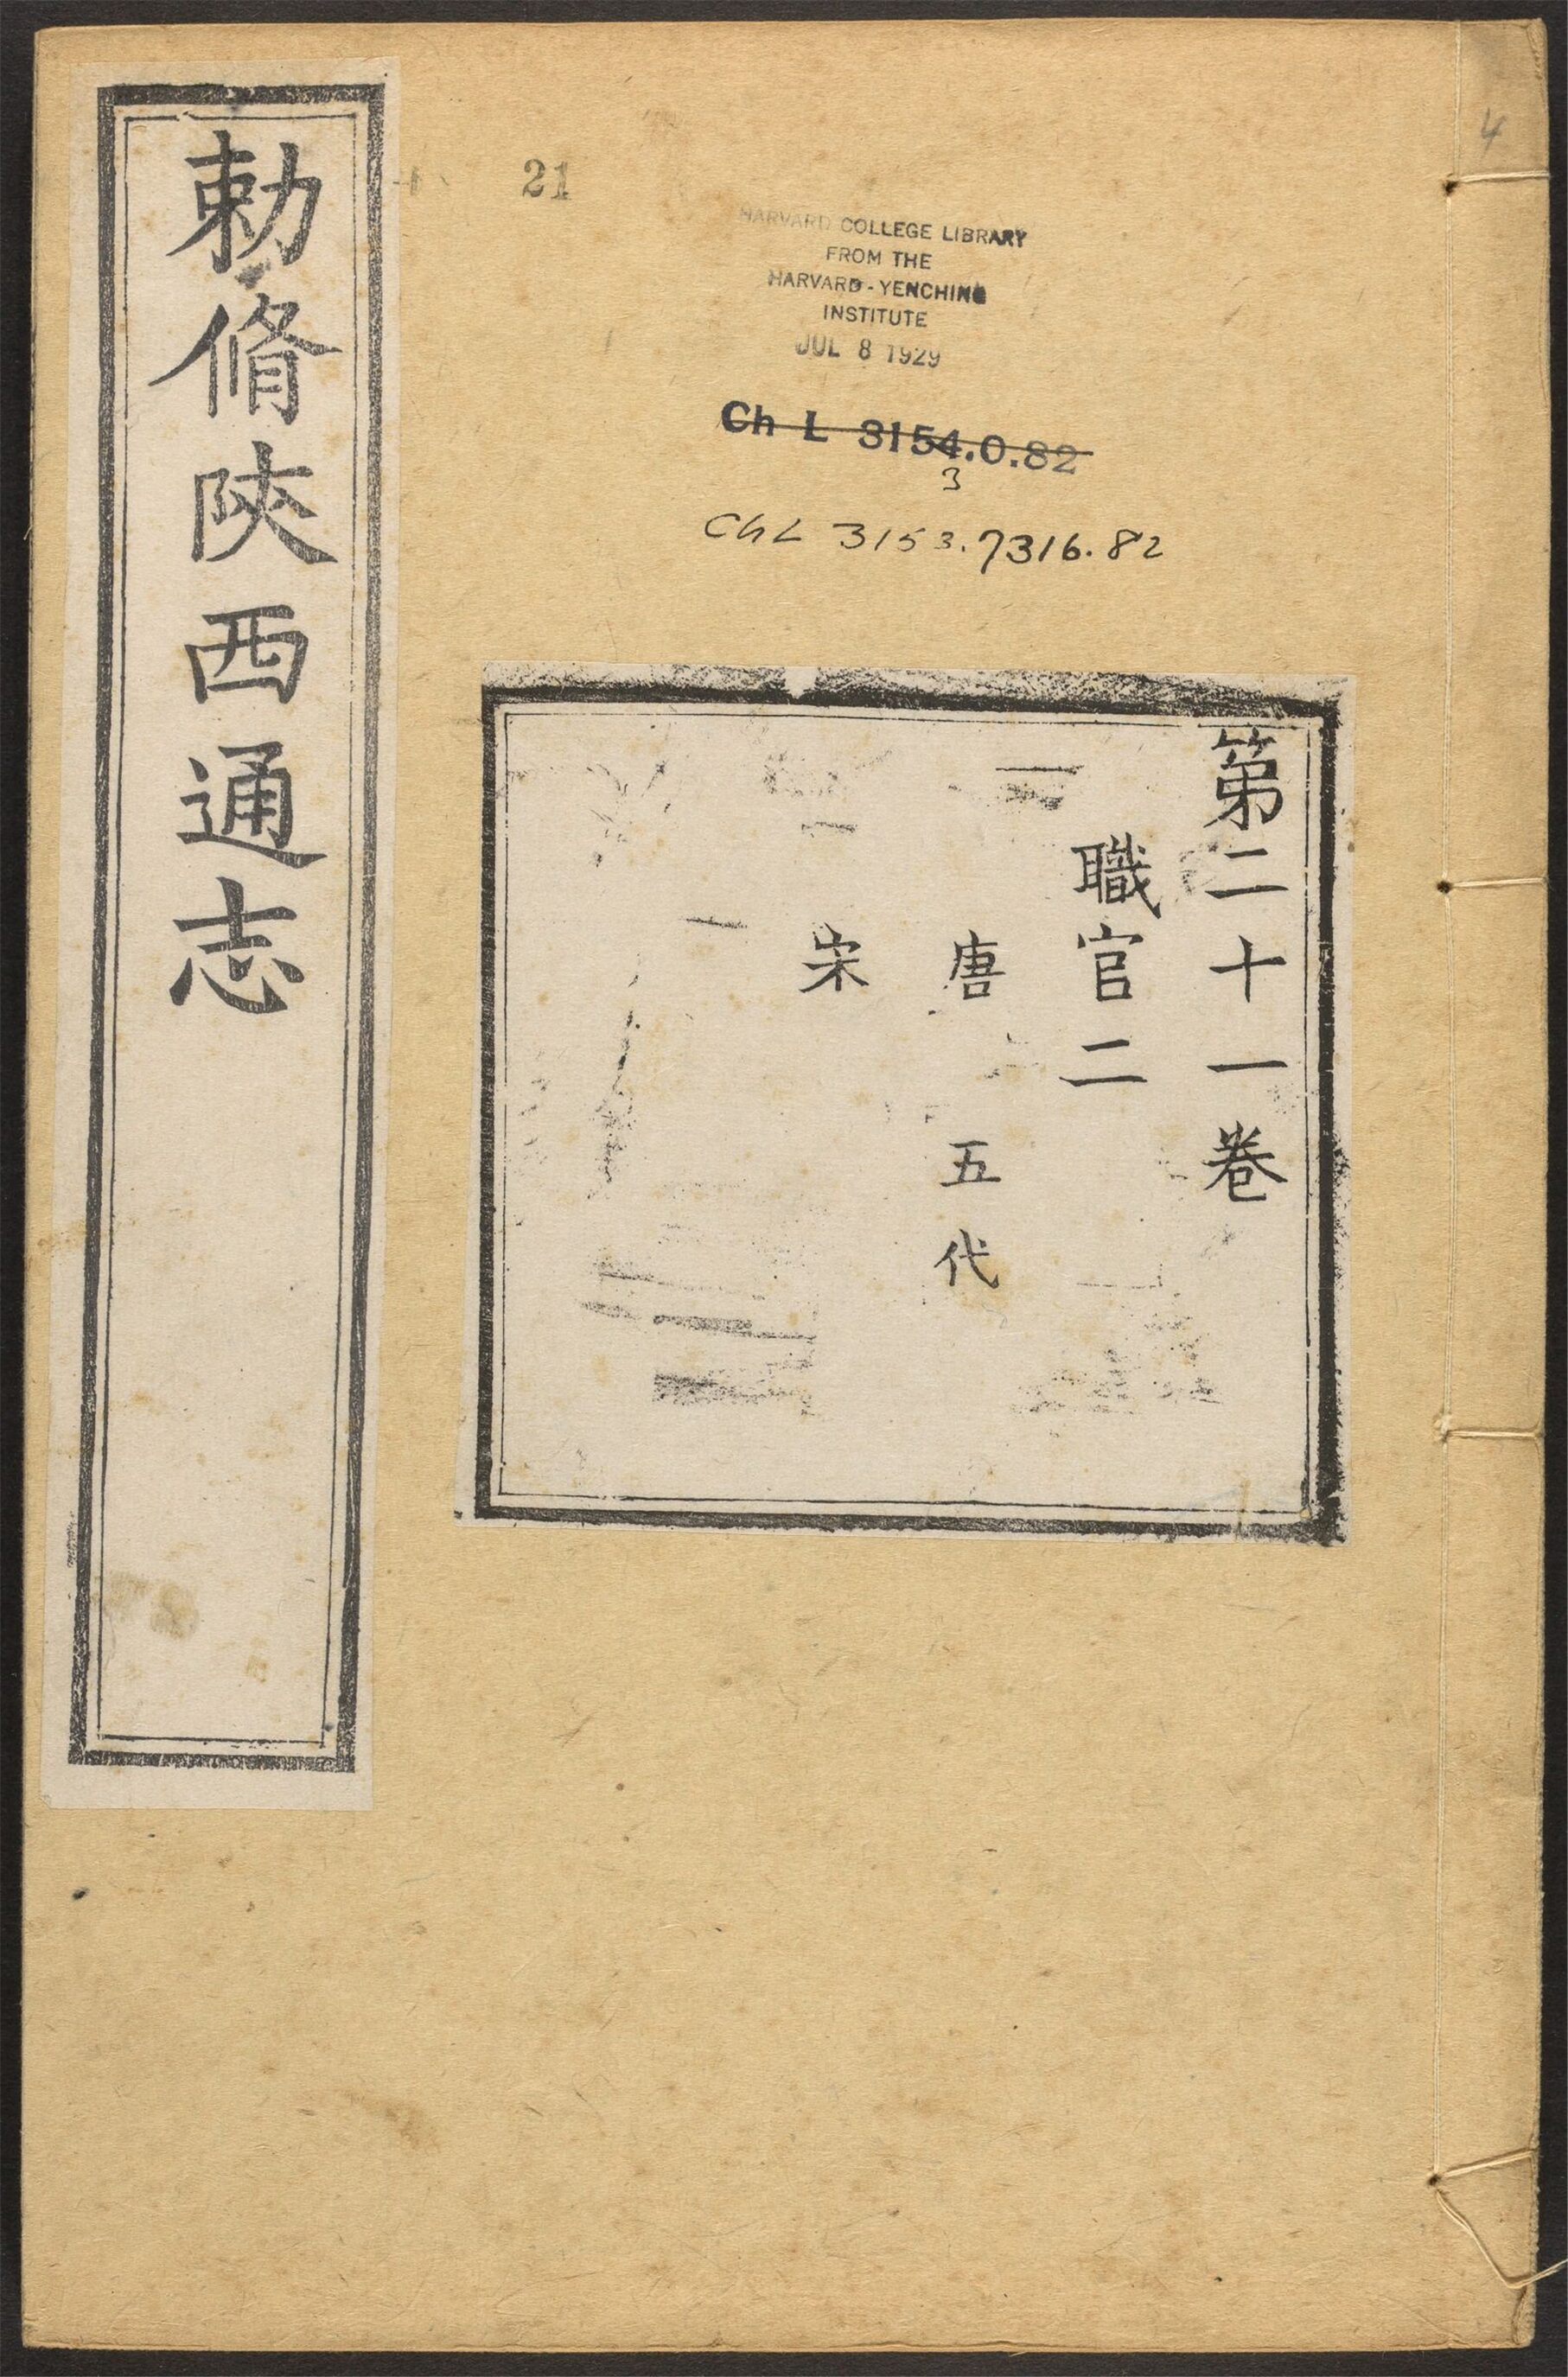 勅脩陜西通志
21
4
HARVARD COLLEGE LIBRARY
FROM THE
HARVARD-YENCHING
INSTITUTE
JUL 8 1929
Ch L 3154.0.82
3
ChL 3153.7316.82
第二十一卷
職官二
唐 五代
宋